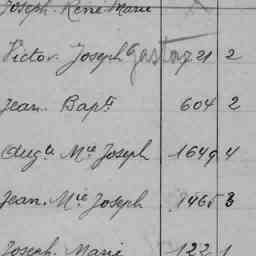 Joseph René Marie
Victor Joseph Gaston 721 2
Jean Bapt 604 2
Augte Mie Joseph 1649 4
Jean Mie Joseph 1465 3
Joseph Marie 1221 1